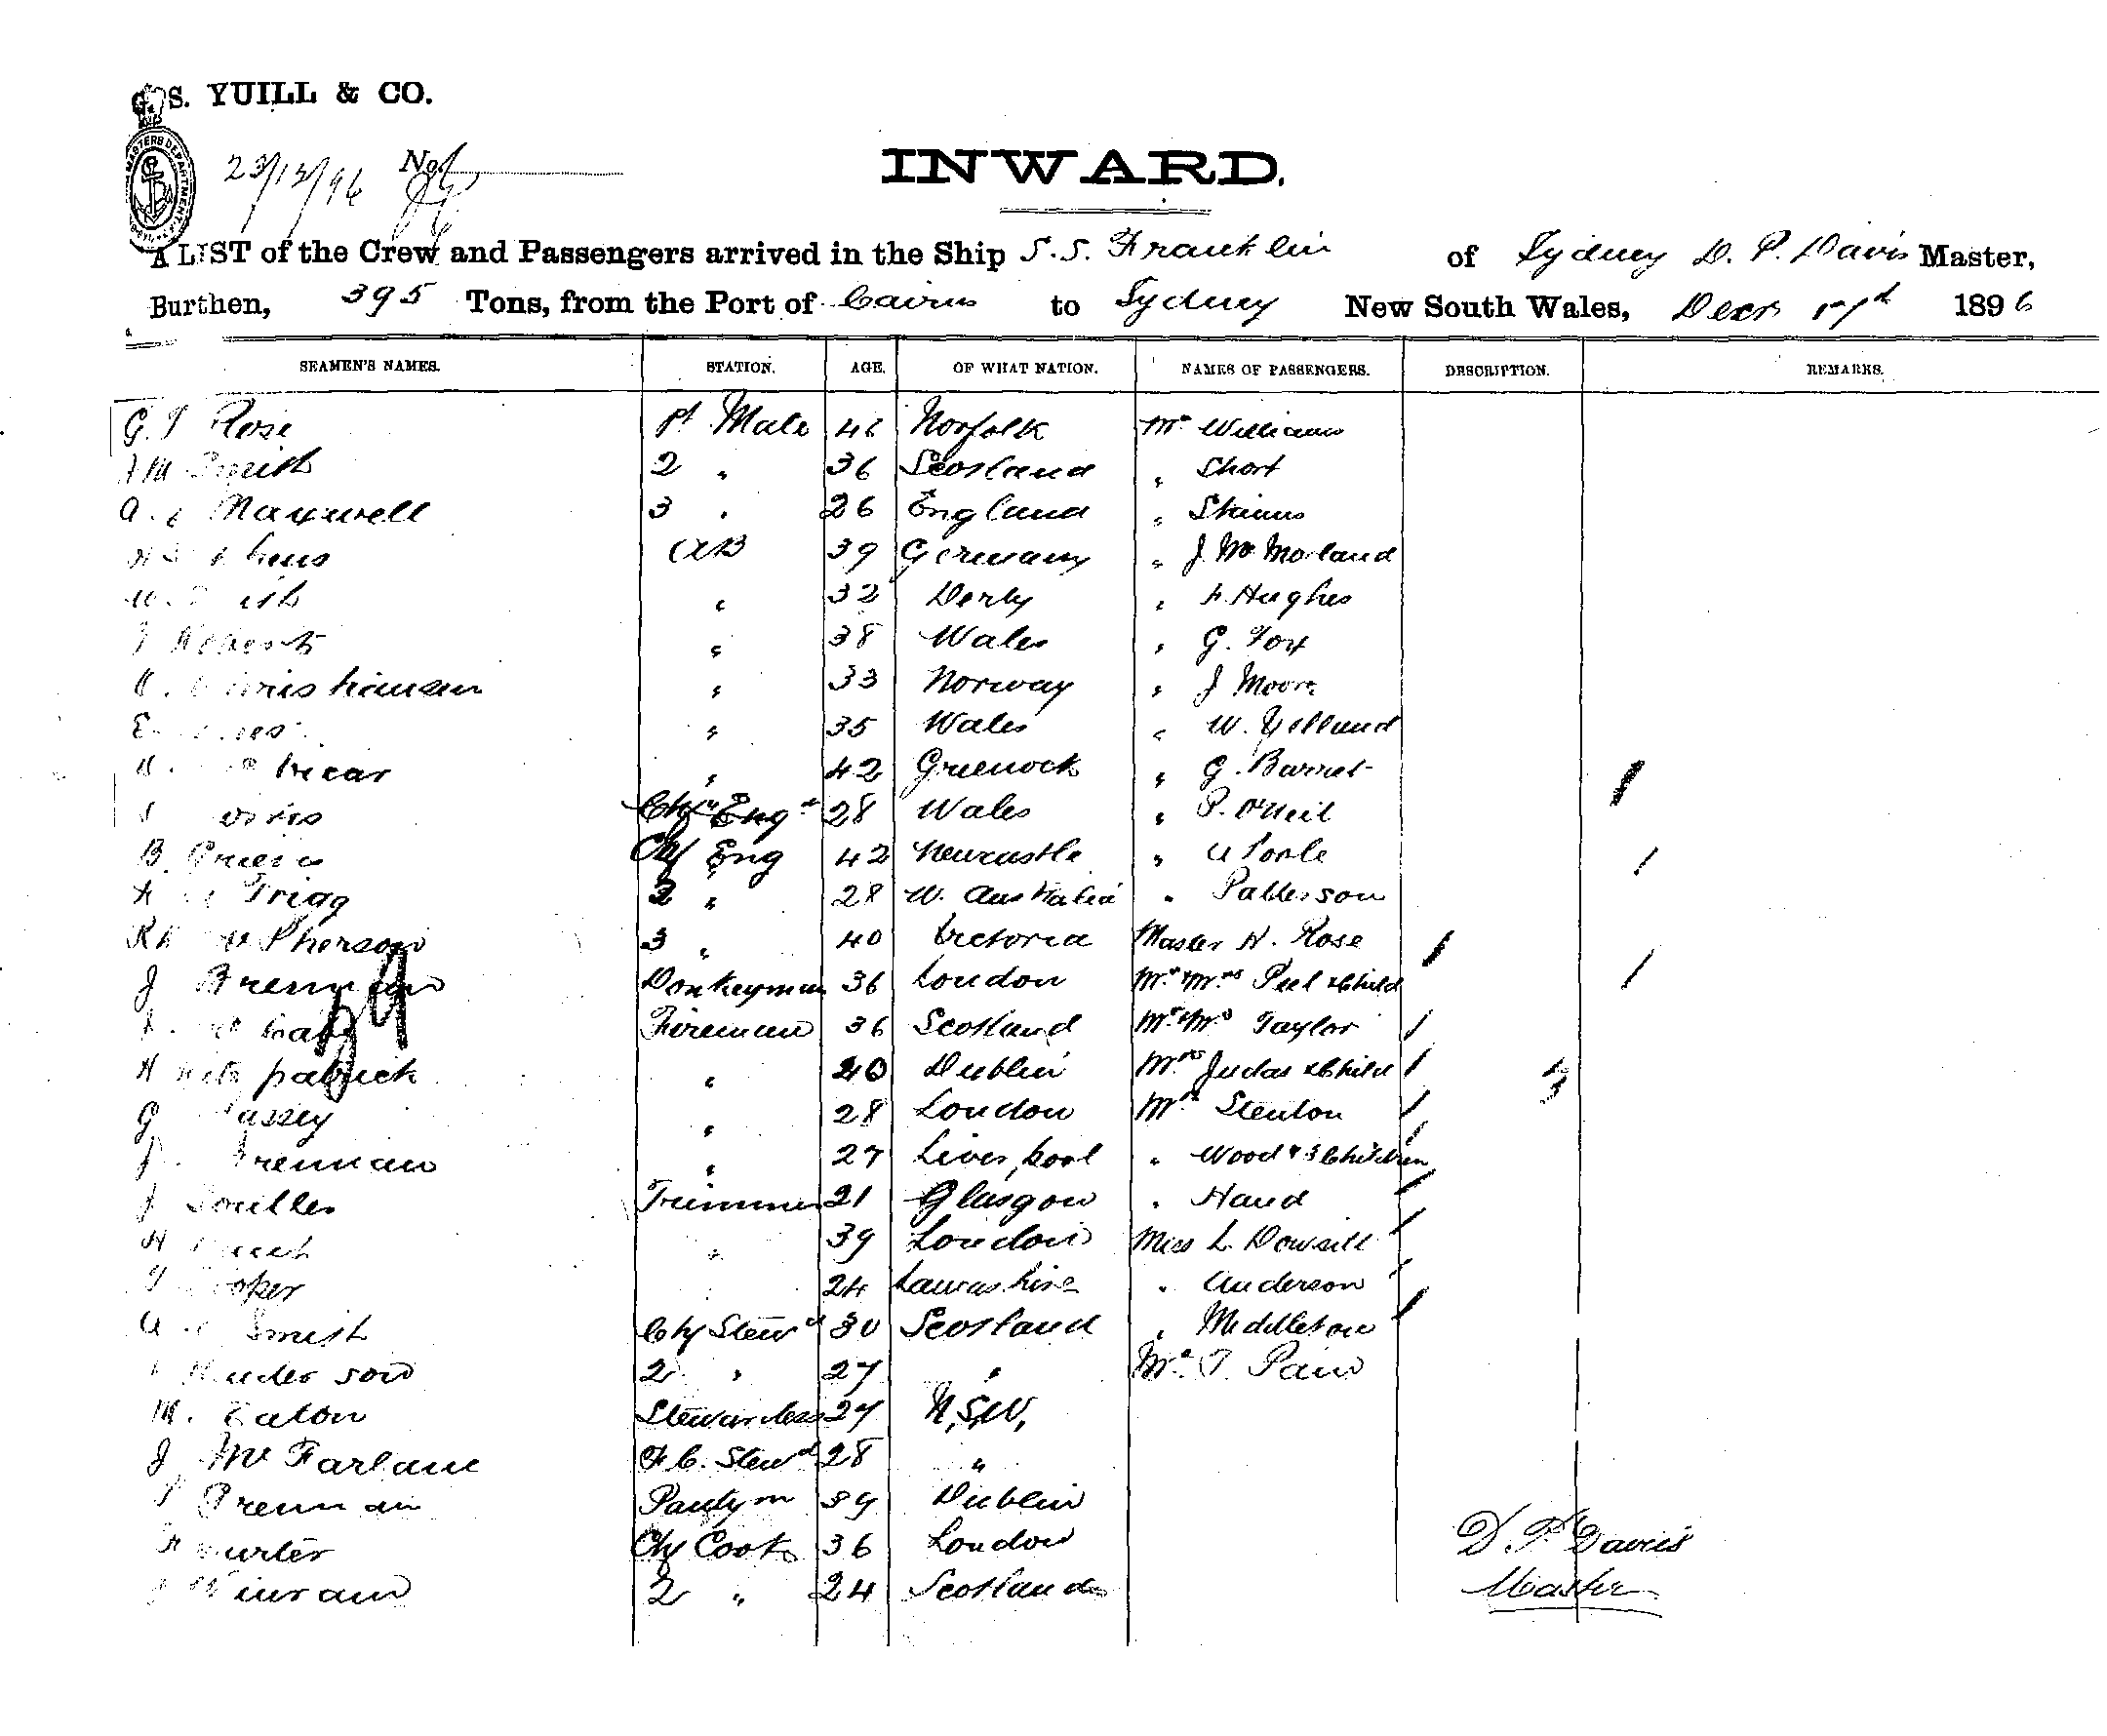 G. S. YUILL & CO.
23/12/96 No.
INWARD.
A LIST of the Crew and Passengers arrived in the Ship S.S. Franklin of Sydney D. P. Davis Master,
Burthen, 395 Tons, from the Port of Cairns to Sydney New South Wales, Decr 17th 1896
SEAMEN'S NAMES. STATION. AGE. OF WHAT NATION. NAMES OF PASSENGERS. DESCRIPTION. REMARKS.
G. T Rose 1st Mate 46 Norfolk Mr Williams
Smith 2 " 36 Scotland " Short
A. Maxwell 3 " 26 England "
AB 39 Germany " J. Mc Morland
32 Derby " Hughes
38 Wales " G. Fox
Christiansen " 33 Norway " J Moore
E " 35 Wales " W. Yelland
" 42 Greenock " G. Barret
Chf Engr 28 Wales " P. O'Neil
B. Chf Eng 42 Newcastle " A Poole
Trigg 2 " 28 W. Australia " Patterson
McPherson 3 " 40 Victoria Master H. Rose
J Brennan Donkeyman 36 London Mr & Mrs Peel & Child
Fireman 36 Scotland Mr & Mrs Taylor
H Fitzpatrick " 40 Dublin Mrs Judas & Child
G Massey " 28 London Mrs Stenton
J. Brennan " 27 Liverpool " Wood & 3 Children
J Trimmer 21 Glasgow " Hand
H " 39 London Miss L. Dowsell
T Cooper 24 Lancashire " Anderson
A Smith Chf Stewd 30 Scotland " Middleton
Henderson 2 " 27 " Mr T. Pain
M. Eaton Stewardess 27 N.S.W.
J McFarlane F.C. Stewd 28 "
Brennan Pantrym 39 Dublin
Chf Cook 36 London
Winram 2 " 24 Scotland
D. P. Davis
Master